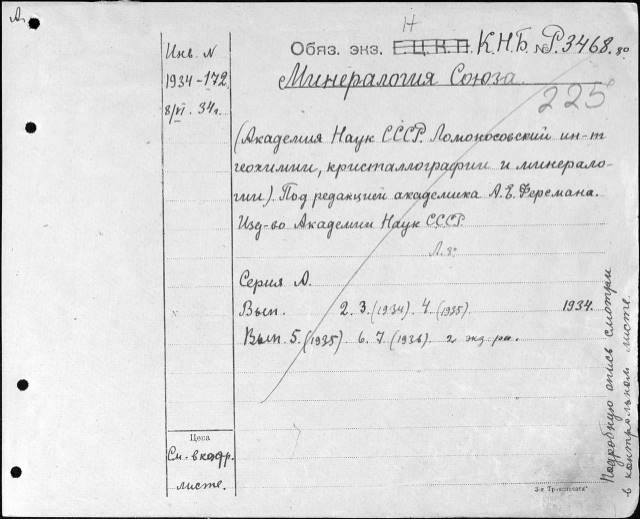 А.
Н
Инв. N
Обяз. экз. Е.Ц.К.П. К.Н.Б. № Р.3468. 8°
1934-172
Минералогия Союза.
8/VI. 34г.
225
(Академия Наук СССР. Ломоносовский ин-т
геохимии, кристаллографии и минерало-
гии). Под редакцией академика А.Е. Ферсмана.
Изд-во Академии Наук СССР.
Л. 8°
Серия А.
Вып. 2. 3. (1934). 4. (1935) 1934.
Вып. 5. (1935) 6. 7. (1936). 2 экз.
Цена
См. в кадр.
листе.
Подробную опись смотри
в контрольном листе.